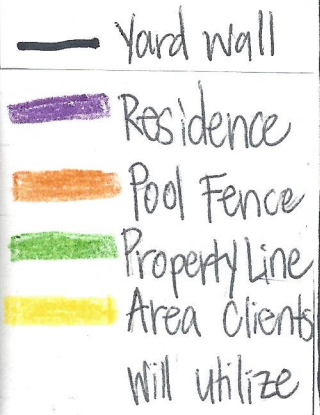 Yard Wall
Residence
Pool Fence
Property Line
Area Clients
Will utilize